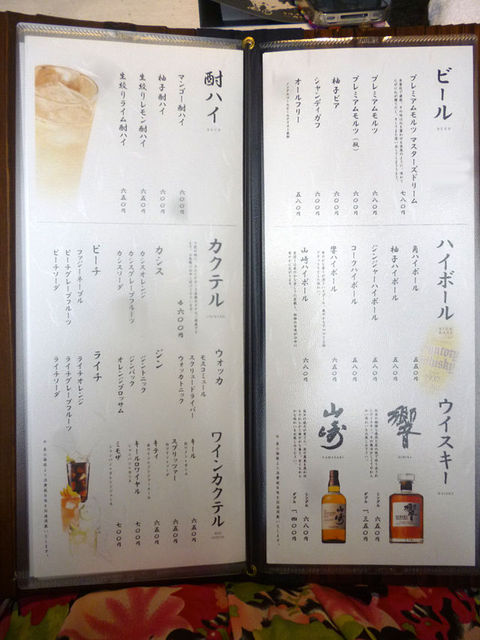 ビール
BEER
プレミアムモルツ マスターズドリーム
七八〇円
プレミアムモルツ
六八〇円
プレミアムモルツ（瓶）
七〇〇円
柚子ビア
六〇〇円
シャンディガフ
六〇〇円
オールフリー
五八〇円
ハイボール
角ハイボール
五五〇円
柚子ハイボール
五八〇円
ジンジャーハイボール
五八〇円
コークハイボール
五八〇円
響ハイボール
山崎ハイボール
六八〇円
ウイスキー
WHISKY
響
HIBIKI
シングル 六五〇円
ダブル 一二五〇円
山崎
YAMAZAKI
シングル 六八〇円
ダブル
酎ハイ
マンゴー酎ハイ
六〇〇円
柚子酎ハイ
六〇〇円
生絞りレモン酎ハイ
六五〇円
生絞りライム酎ハイ
六五〇円
カクテル
COCKTAIL
各六〇〇円
カシス
カシスオレンジ
カシスグレープフルーツ
カシスソーダ
ピーチ
ファジーネーブル
ピーチグレープフルーツ
ピーチソーダ
ウォッカ
モスコミュール
スクリュードライバー
ウォッカトニック
ジン
ジントニック
ジンバック
オレンジブロッサム
ライチ
ライチオレンジ
ライチグレープフルーツ
ライチソーダ
ワインカクテル
WINE COCKTAIL
キール
六五〇円
スプリッツァー
六五〇円
キティ
六五〇円
キールロワイヤル
七〇〇円
ミモザ
七〇〇円